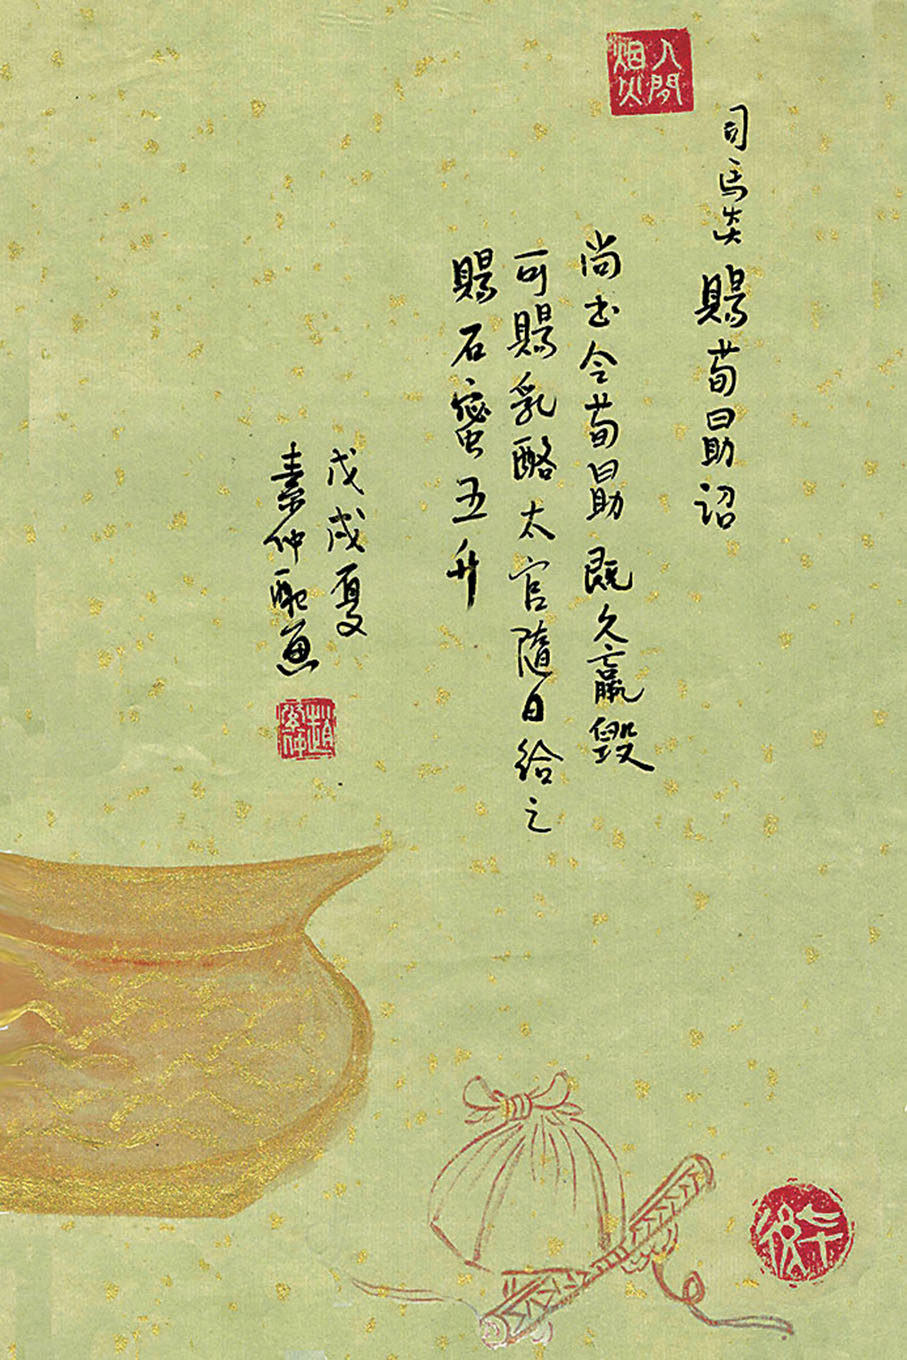 人間
烟火
司馬炎 賜荀勗詔
尚書令荀勗既久羸毀
可賜乳酪太官隨日給之
賜石蜜五升
戊戌夏
素仲配畫